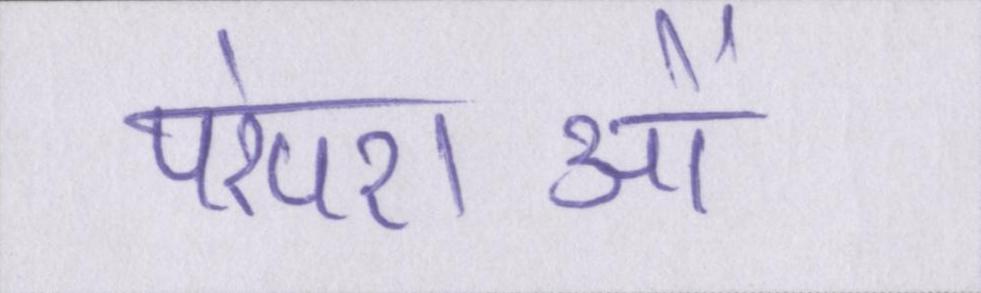 परंपराओं